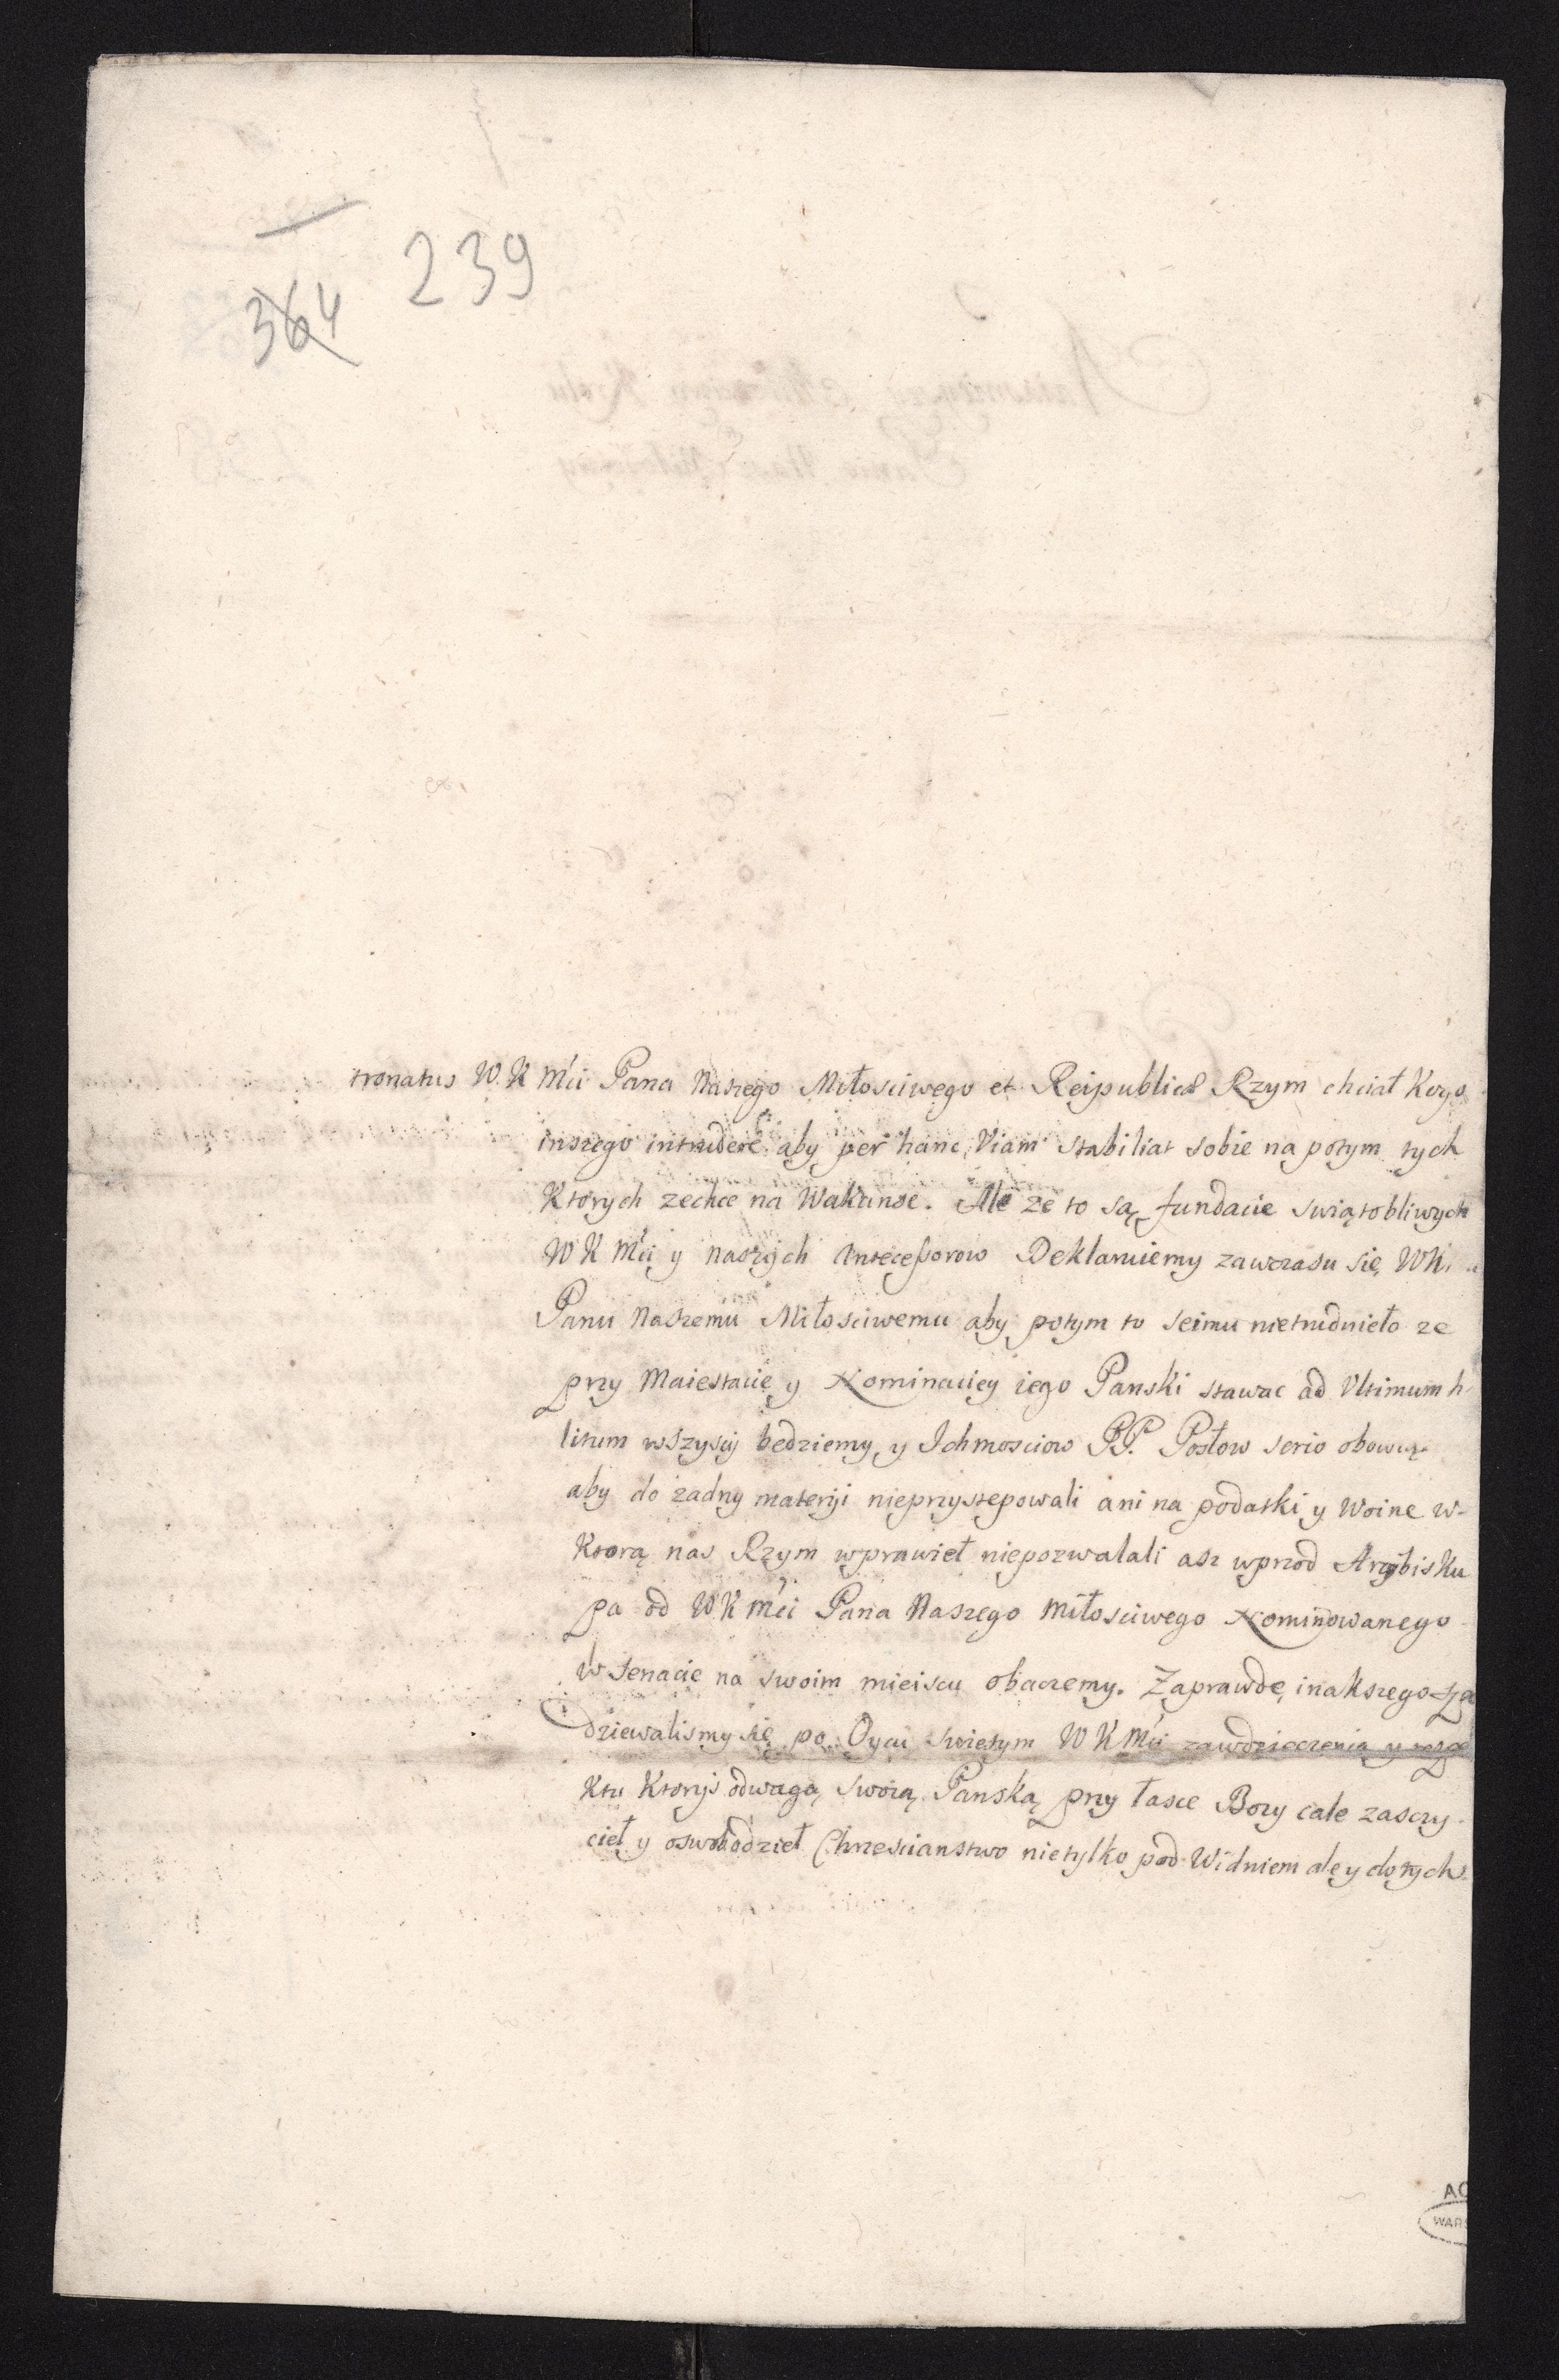 239
364
tronatus W. K Mći Pana Naszego Miłosciwego et Reipublicæ Rzym chciał Kogo
inszego intrudere aby per hanc Viam stabiliat sobie na potym tych
Ktorych zechce na Wakanse. Ale ze to są fundacie swiątobliwych
W K Mći y naszych Antecessorow Deklaruiemy zawczasu się WK
Panu Naszemu Miłosciwemu aby potym to seimu nietrudnieło ze
przy Maiestacie y Nominaciey iego Panski stawac ad Vltimum h
litum wszyscy bedziemy y Ichmosciow PP. Posłow serio obowią
aby do zadny materyi nieprzystepowali ani na podatki y Woine w-
Ktorą nas Rzym wprawieł niepozwalali asz wprzod Arcybisku
pa od W K Mći Pana Naszego Miłosciwego Nominowanego
w Senacie na swoim mieiscu obaczemy. Zaprawde inakszego
dziewalismy się po Oycu Swietym W K Mći zawdzieczenia y
ktu Ktoryś odwagą swoią Panską przy łasce Bozy cale zasczy
cieł y oswobodzieł Chrzescianstwo nietylko pod Widniem ale y do tych
AG
WARS